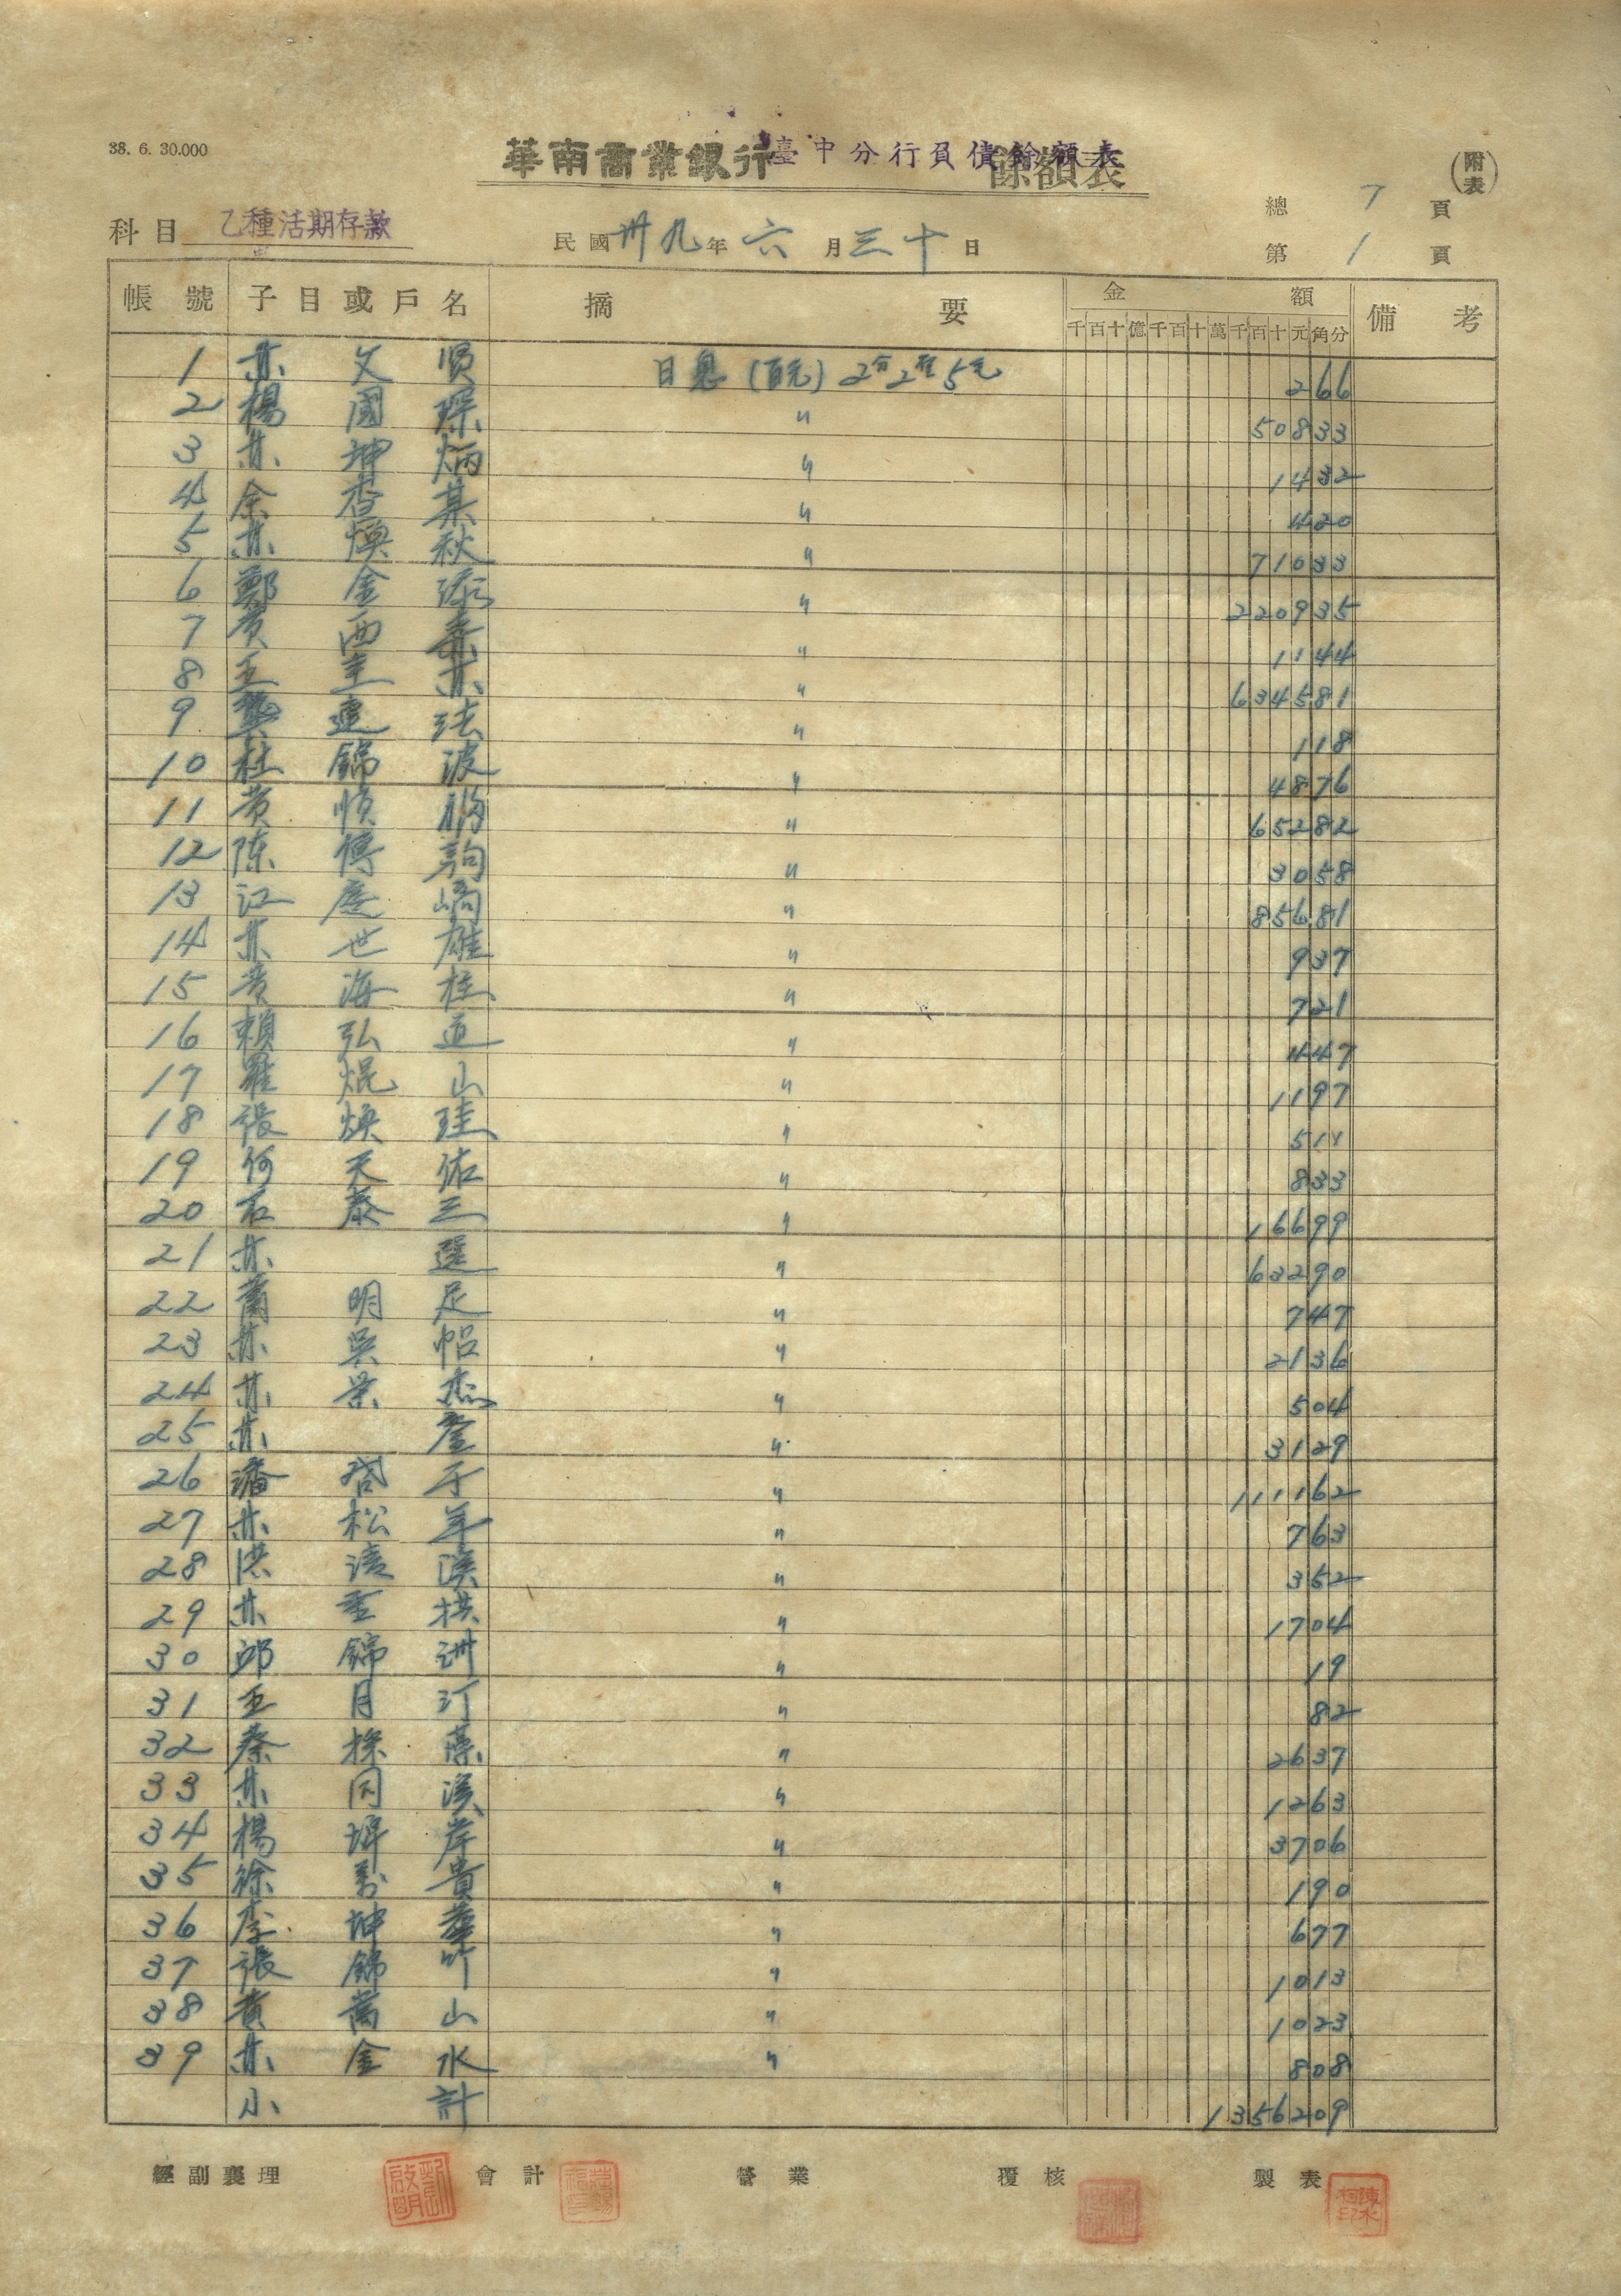 38. 6. 30.000
華南商業銀行臺中分行負債餘額表
餘額表
(附表)
總 7 頁
科目 乙種活期存款
民國 卅九 年 六 月 三十 日
第 1 頁
帳號 子目或戶名 摘要 金額 備考
千百十億千百十萬千百十元角分
1 文賢 日息(百元) 2分2厘5毛 266
2 楊國琛 〃 50833
3 坤炳 〃 1432
4 余 〃 420
5 煥秋 〃 71033
6 鄭金添 〃 220935
7 黃西 〃 1144
8 王 〃 634581
9 龔連法 〃 118
10 杜錦波 〃 4876
11 黃順 〃 65282
12 陈傳駒 〃 3058
13 江慶 〃 85681
14 世雄 〃 937
15 黃海桂 〃 721
16 賴弘道 〃 447
17 羅焜山 〃 1197
18 張煥珪 〃 511
19 何天佑 〃 833
20 石泰三 〃 16699
21 選 〃 63290
22 蕭明足 〃 747
23 吳 〃 2136
24 景杰 〃 504
25 〃 3129
26 潘 〃 111162
27 松年 〃 763
28 洪清溪 〃 352
29 〃 1704
30 邱錦洲 〃 19
31 王月汀 〃 82
32 蔡採 〃 2637
33 溪 〃 1263
34 楊 岸 〃 3706
35 徐 貴 〃 190
36 李坤 〃 677
37 張錦竹 〃 1013
38 黃萬山 〃 1023
39 金水 〃 808
小計 1356209
經副襄理 會計 營業 覆核 製表